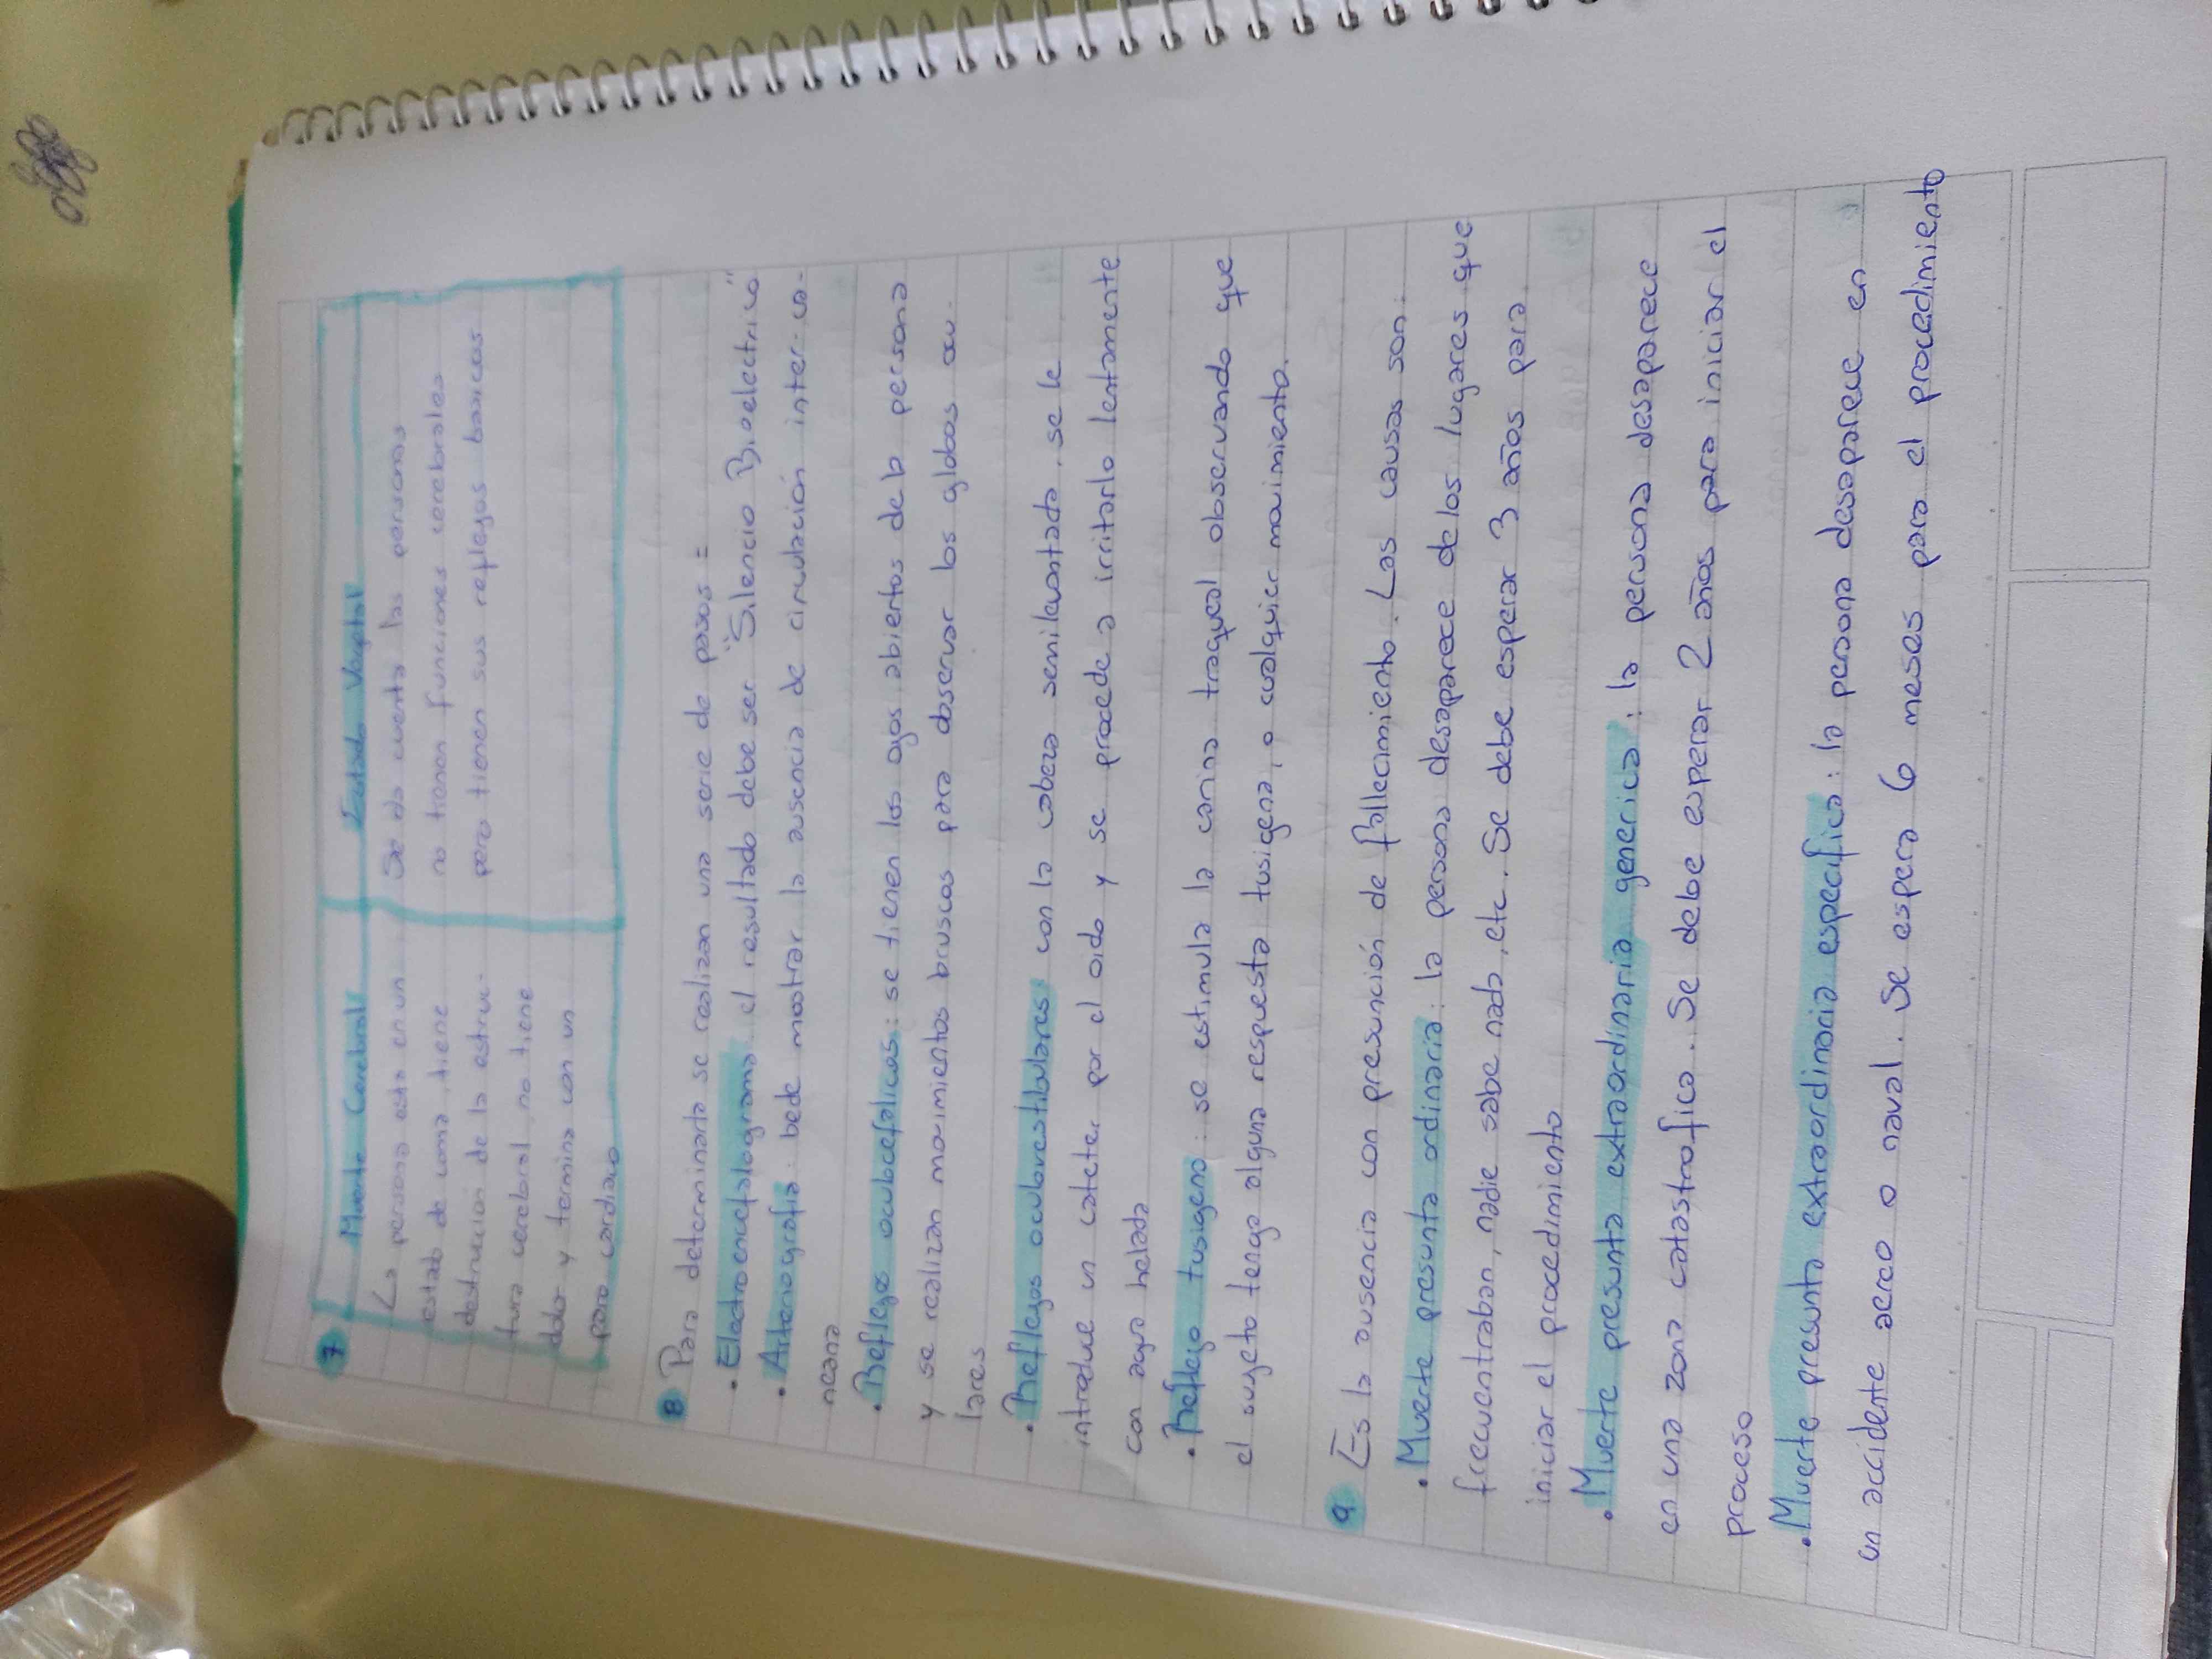 7
Muerte Cerebral
La persona esta en un
estado de coma, tiene
destrucion de la estruc-
tura cerebral, no tiene
dolor y termina con un
paro cardiaco
Estado Vegetal
Se da cuenta las personas
no tienen funciones cerebrales
pero tienen sus reflejos basicos
8 Para determinarla se realizan una serie de pasos =
• Electroencefalograma: el resultado debe ser "Silencio Bioelectrico"
• Arteriografia: bede mostrar la ausencia de circulación inter-ca-
neana
• Reflejos oculocefalicos: se tienen los ojos abiertos de la persona
y se realizan movimientos bruscos para observar los globos ocu-
lares
• Reflejos oculovestibulares: con la cabeza semilevantada, se le
introduce un cateter por el oido y se procede a irritarlo lentamente
con agua helada
• Reflejo tusigeno: se estimula la carina traqueal observando que
el sugeto tenga alguna respuesta tusigena, o cualquier movimiento.
9 Es la ausencia con presunción de fallecimiento. Las causas son:
• Muerte presunta ordinaria: la persona desaparece de los lugares que
frecuentraban, nadie sabe nada, etc. Se debe esperar 3 años para
iniciar el procedimiento
• Muerte presunta extraordinaria generica: la persona desaparece
en una zona catastrofica. Se debe esperar 2 años para iniciar el
proceso
• Muerte presunta extraordinaria especifica: la persona desaparece en
un accidente aereo o naval. Se espera 6 meses para el procedimiento